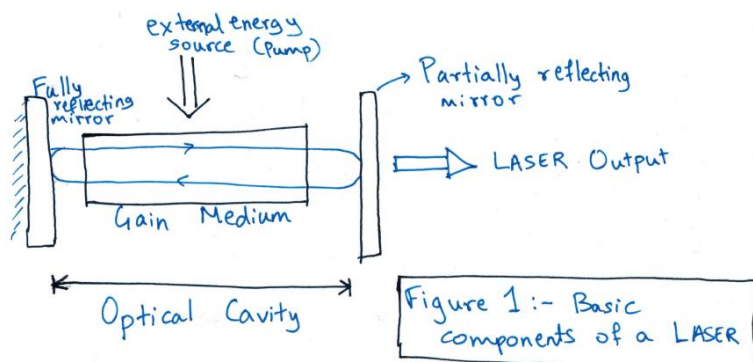 external energy
source (Pump)
Fully
reflecting
mirror
Partially reflecting
mirror
LASER Output
Gain Medium
Optical Cavity
Figure 1:- Basic
components of a LASER